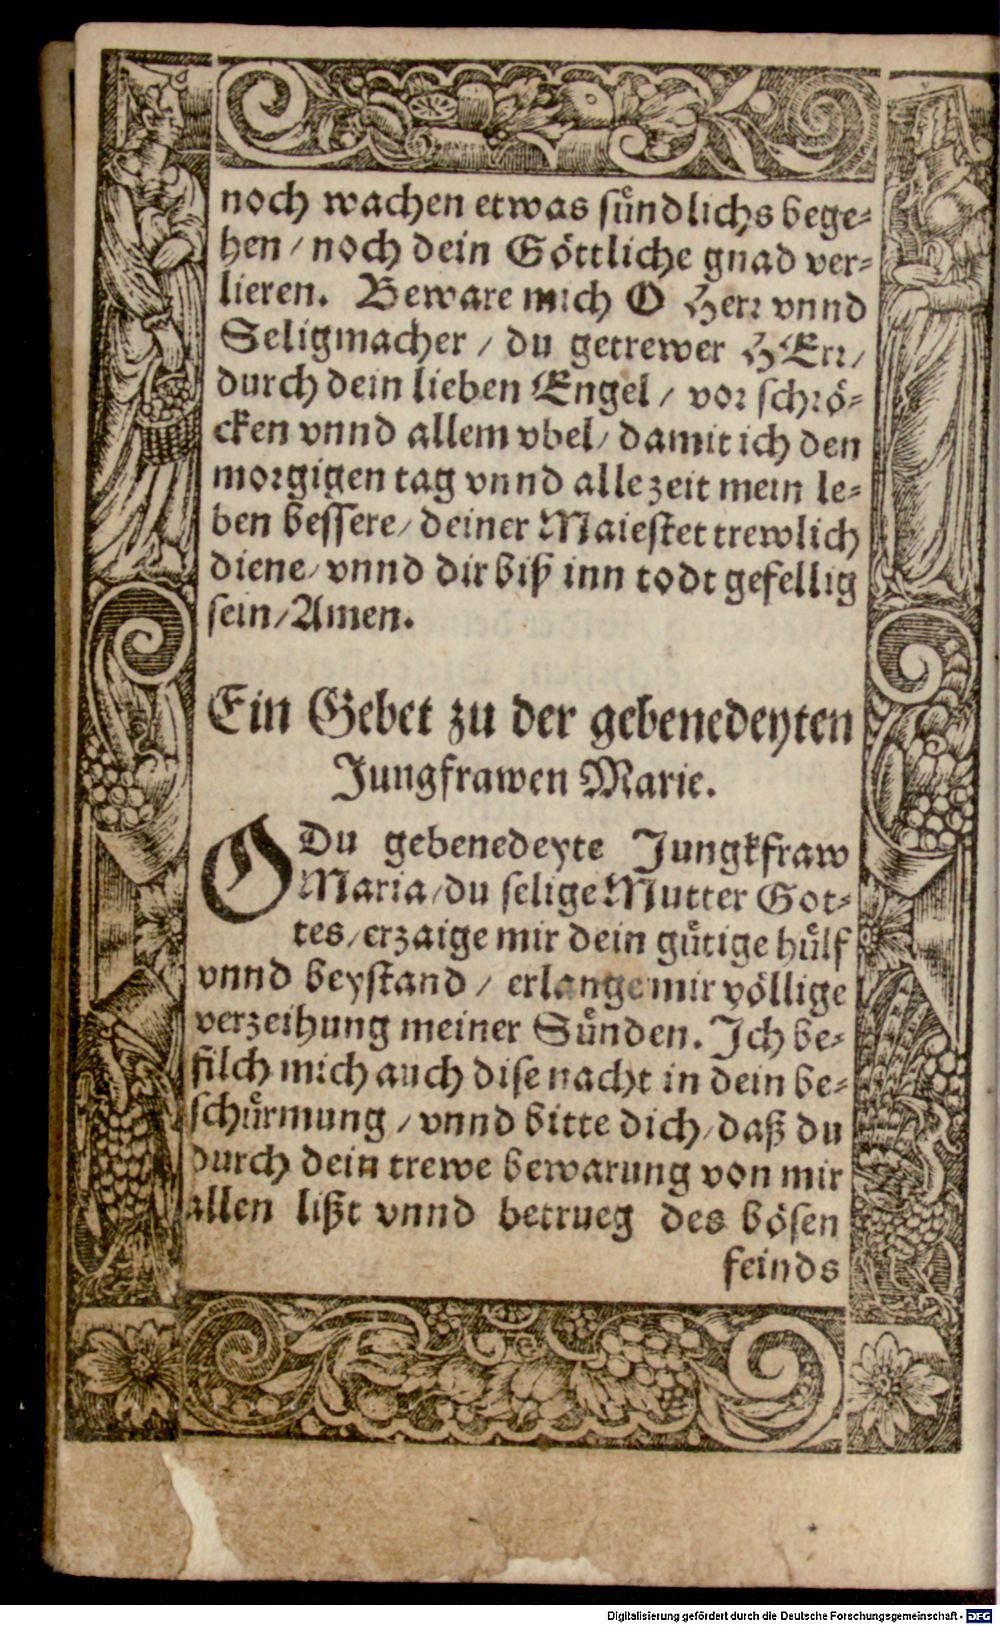 noch wachen etwas sündlichs bege-
hen / noch dein Göttliche gnad ver-
lieren. Beware mich O Herr vnnd
Seligmacher / du getrewer HErr /
durch dein lieben Engel / vor schrö-
cken vnnd allem vbel / damit ich den
morgigen tag vnnd alle zeit mein le-
ben bessere / deiner Maiestet trewlich
diene / vnnd dir biß inn todt gefellig
sein / Amen.
Ein Gebet zu der gebenedeyten
Jungfrawen Marie.
ODu gebenedeyte Jungkfraw
Maria / du selige Mutter Got-
tes / erzaige mir dein gütige hülf
vnnd beystand / erlange mir völlige
verzeihung meiner Sünden. Ich be-
filch mich auch dise nacht in dein be-
schürmung / vnnd bitte dich / daß du
durch dein trewe bewarung von mir
allen lißt vnnd betrueg des bösen
feinds
Digitalisierung gefördert durch die Deutsche Forschungsgemeinschaft - DFG